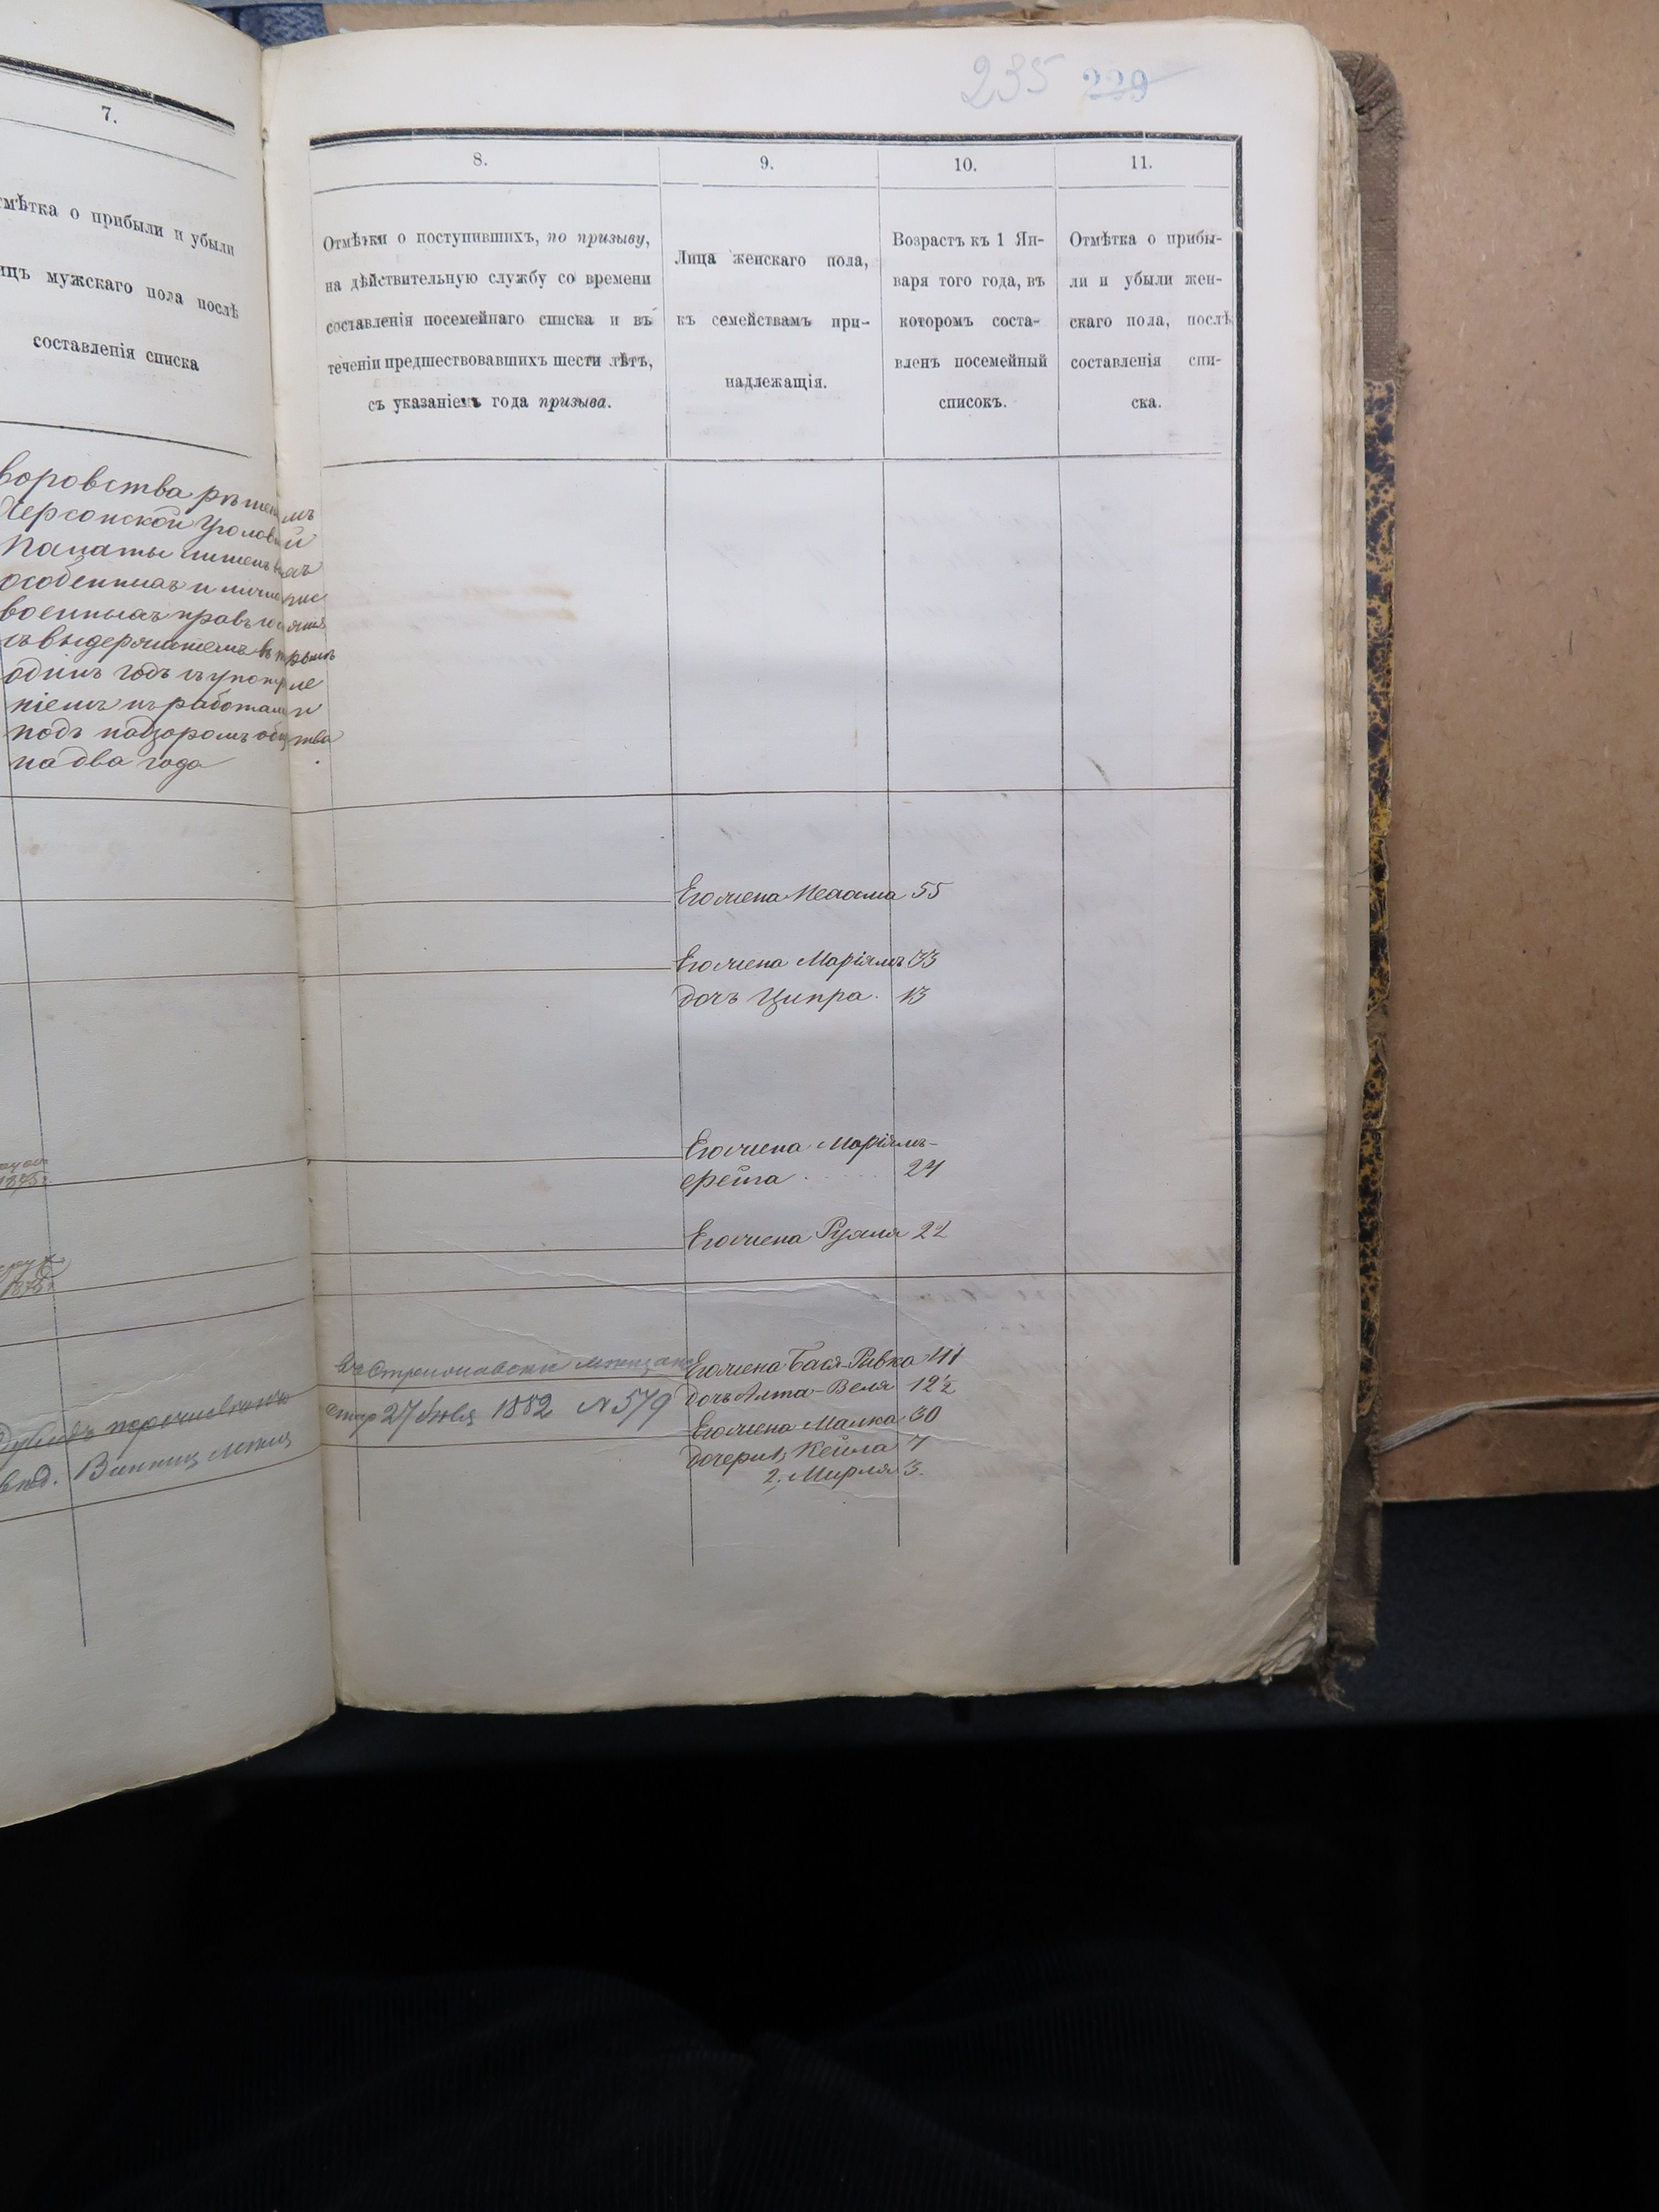 7.
отмѣтка о прибыли и убыли
лицъ мужскаго пола послѣ
составленія списка
воровства рѣшеніемъ
Херсонской Уголовной
Палаты лишенъ всѣхъ
особенныхъ и лично
военныхъ правъ
съ выдержаніемъ въ
одинъ годъ съ употребле
ніемъ въ работы и
подъ надзоромъ общества
на два года
1875
1875
перечисленъ
Винниц мѣщ
235 239
8.
Отмѣтки о поступившихъ, по призыву,
на дѣйствительную службу со времени
составленія посемейнаго списка и въ
теченіи предшествовавшихъ шести лѣтъ,
съ указаніемъ года призыва.
9.
Лица женскаго пола,
къ семействамъ при-
надлежащія.
10.
Возрастъ къ 1 Ян-
варя того года, въ
которомъ соста-
вленъ посемейный
списокъ.
11.
Отмѣтка о прибы-
ли и убыли жен-
скаго пола, послѣ
составленія спи-
ска.
Его жена 55
Его жена Маріямъ 33
дочь Ципра. 13
Его жена Маріямъ-
Фейга 24
Его жена Рузя 22
мѣщанск
стар 27 1882 N 579
Его жена Бася-Ривка 41
дочь Алта-Вела 12½
Его жена Малка 30
дочери 1, Кейла 7
2. Мирля 3.